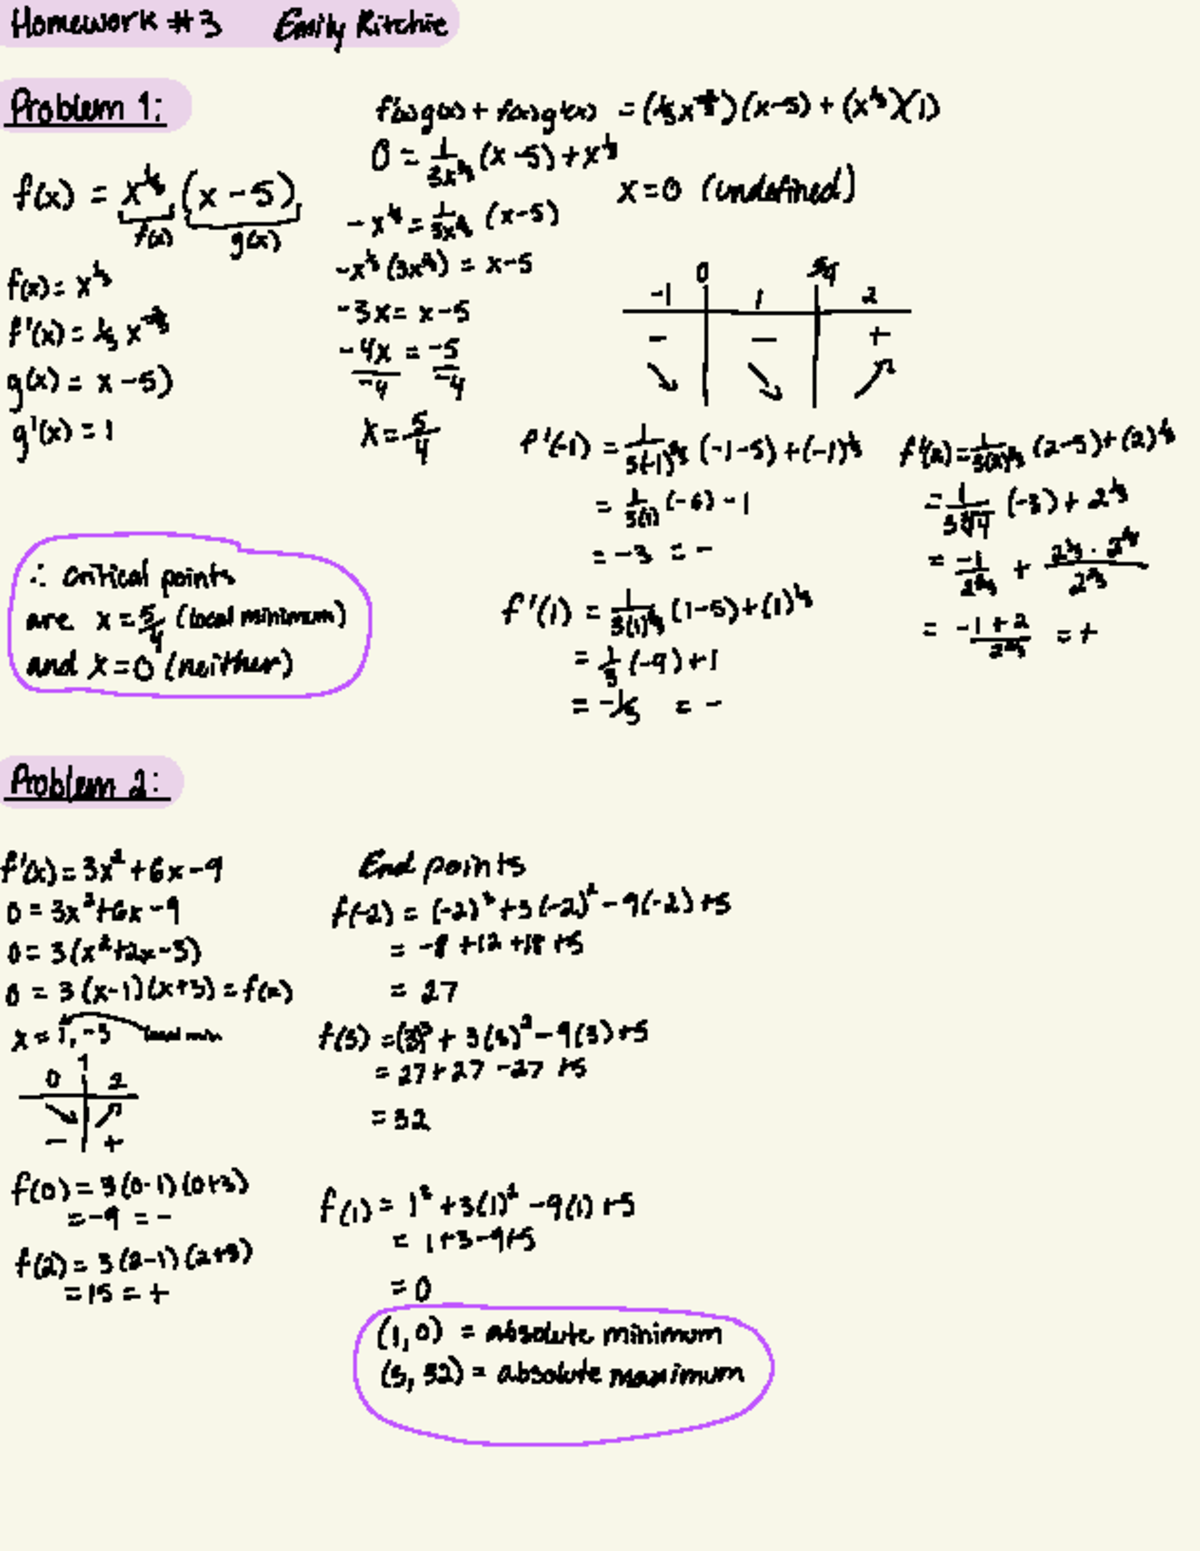 Homework #3 Emily Ritchie
Problem 1:
f(x) = x^(1/3) (x - 5)
f(x) g(x)
f(x) = x^(1/3)
f'(x) = 1/3 x^(-2/3)
g(x) = x - 5)
g'(x) = 1
f'(x)g(x) + f(x)g'(x) = (1/3 x^(-2/3))(x-5) + (x^(1/3))(1)
0 = 1/(3x^(2/3)) (x-5) + x^(1/3)
-x^(1/3) = 1/(3x^(2/3)) (x-5)
-x^(1/3) (3x^(2/3)) = x-5
-3x = x-5
-4x/-4 = -5/-4
x = 5/4
x=0 (undefined)
0 5/4
-1 1 2
- - +
f'(-1) = 1/(3(-1)^(2/3)) (-1-5) + (-1)^(1/3)
= 1/(3(1)) (-6) - 1
= -3 = -
f'(1) = 1/(3(1)^(2/3)) (1-5) + (1)^(1/3)
= 1/3 (-4) + 1
= -1/3 = -
f'(2) = 1/(3(2)^(2/3)) (2-5) + (2)^(1/3)
= 1/(3∛4) (-3) + 2^(1/3)
= -1/2^(2/3) + 2^(1/3) · 2^(2/3)/2^(2/3)
= -1+2/2^(2/3) = +
∴ critical points
are x = 5/4 (local minimum)
and x = 0 (neither)
Problem 2:
f'(x) = 3x² + 6x - 9
0 = 3x² + 6x - 9
0 = 3(x² + 2x - 3)
0 = 3(x-1)(x+3) = f(x)
x = 1, -3 local min
1
0 2
- +
f(0) = 3(0-1)(0+3)
= -9 = -
f(2) = 3(2-1)(2+3)
= 15 = +
End points
f(-2) = (-2)³ + 3(-2)² - 9(-2) + 5
= -8 + 12 + 18 + 5
= 27
f(3) = (3)³ + 3(3)² - 9(3) + 5
= 27 + 27 - 27 + 5
= 32
f(1) = 1³ + 3(1)² - 9(1) + 5
= 1 + 3 - 9 + 5
= 0
(1, 0) = absolute minimum
(3, 32) = absolute maximum